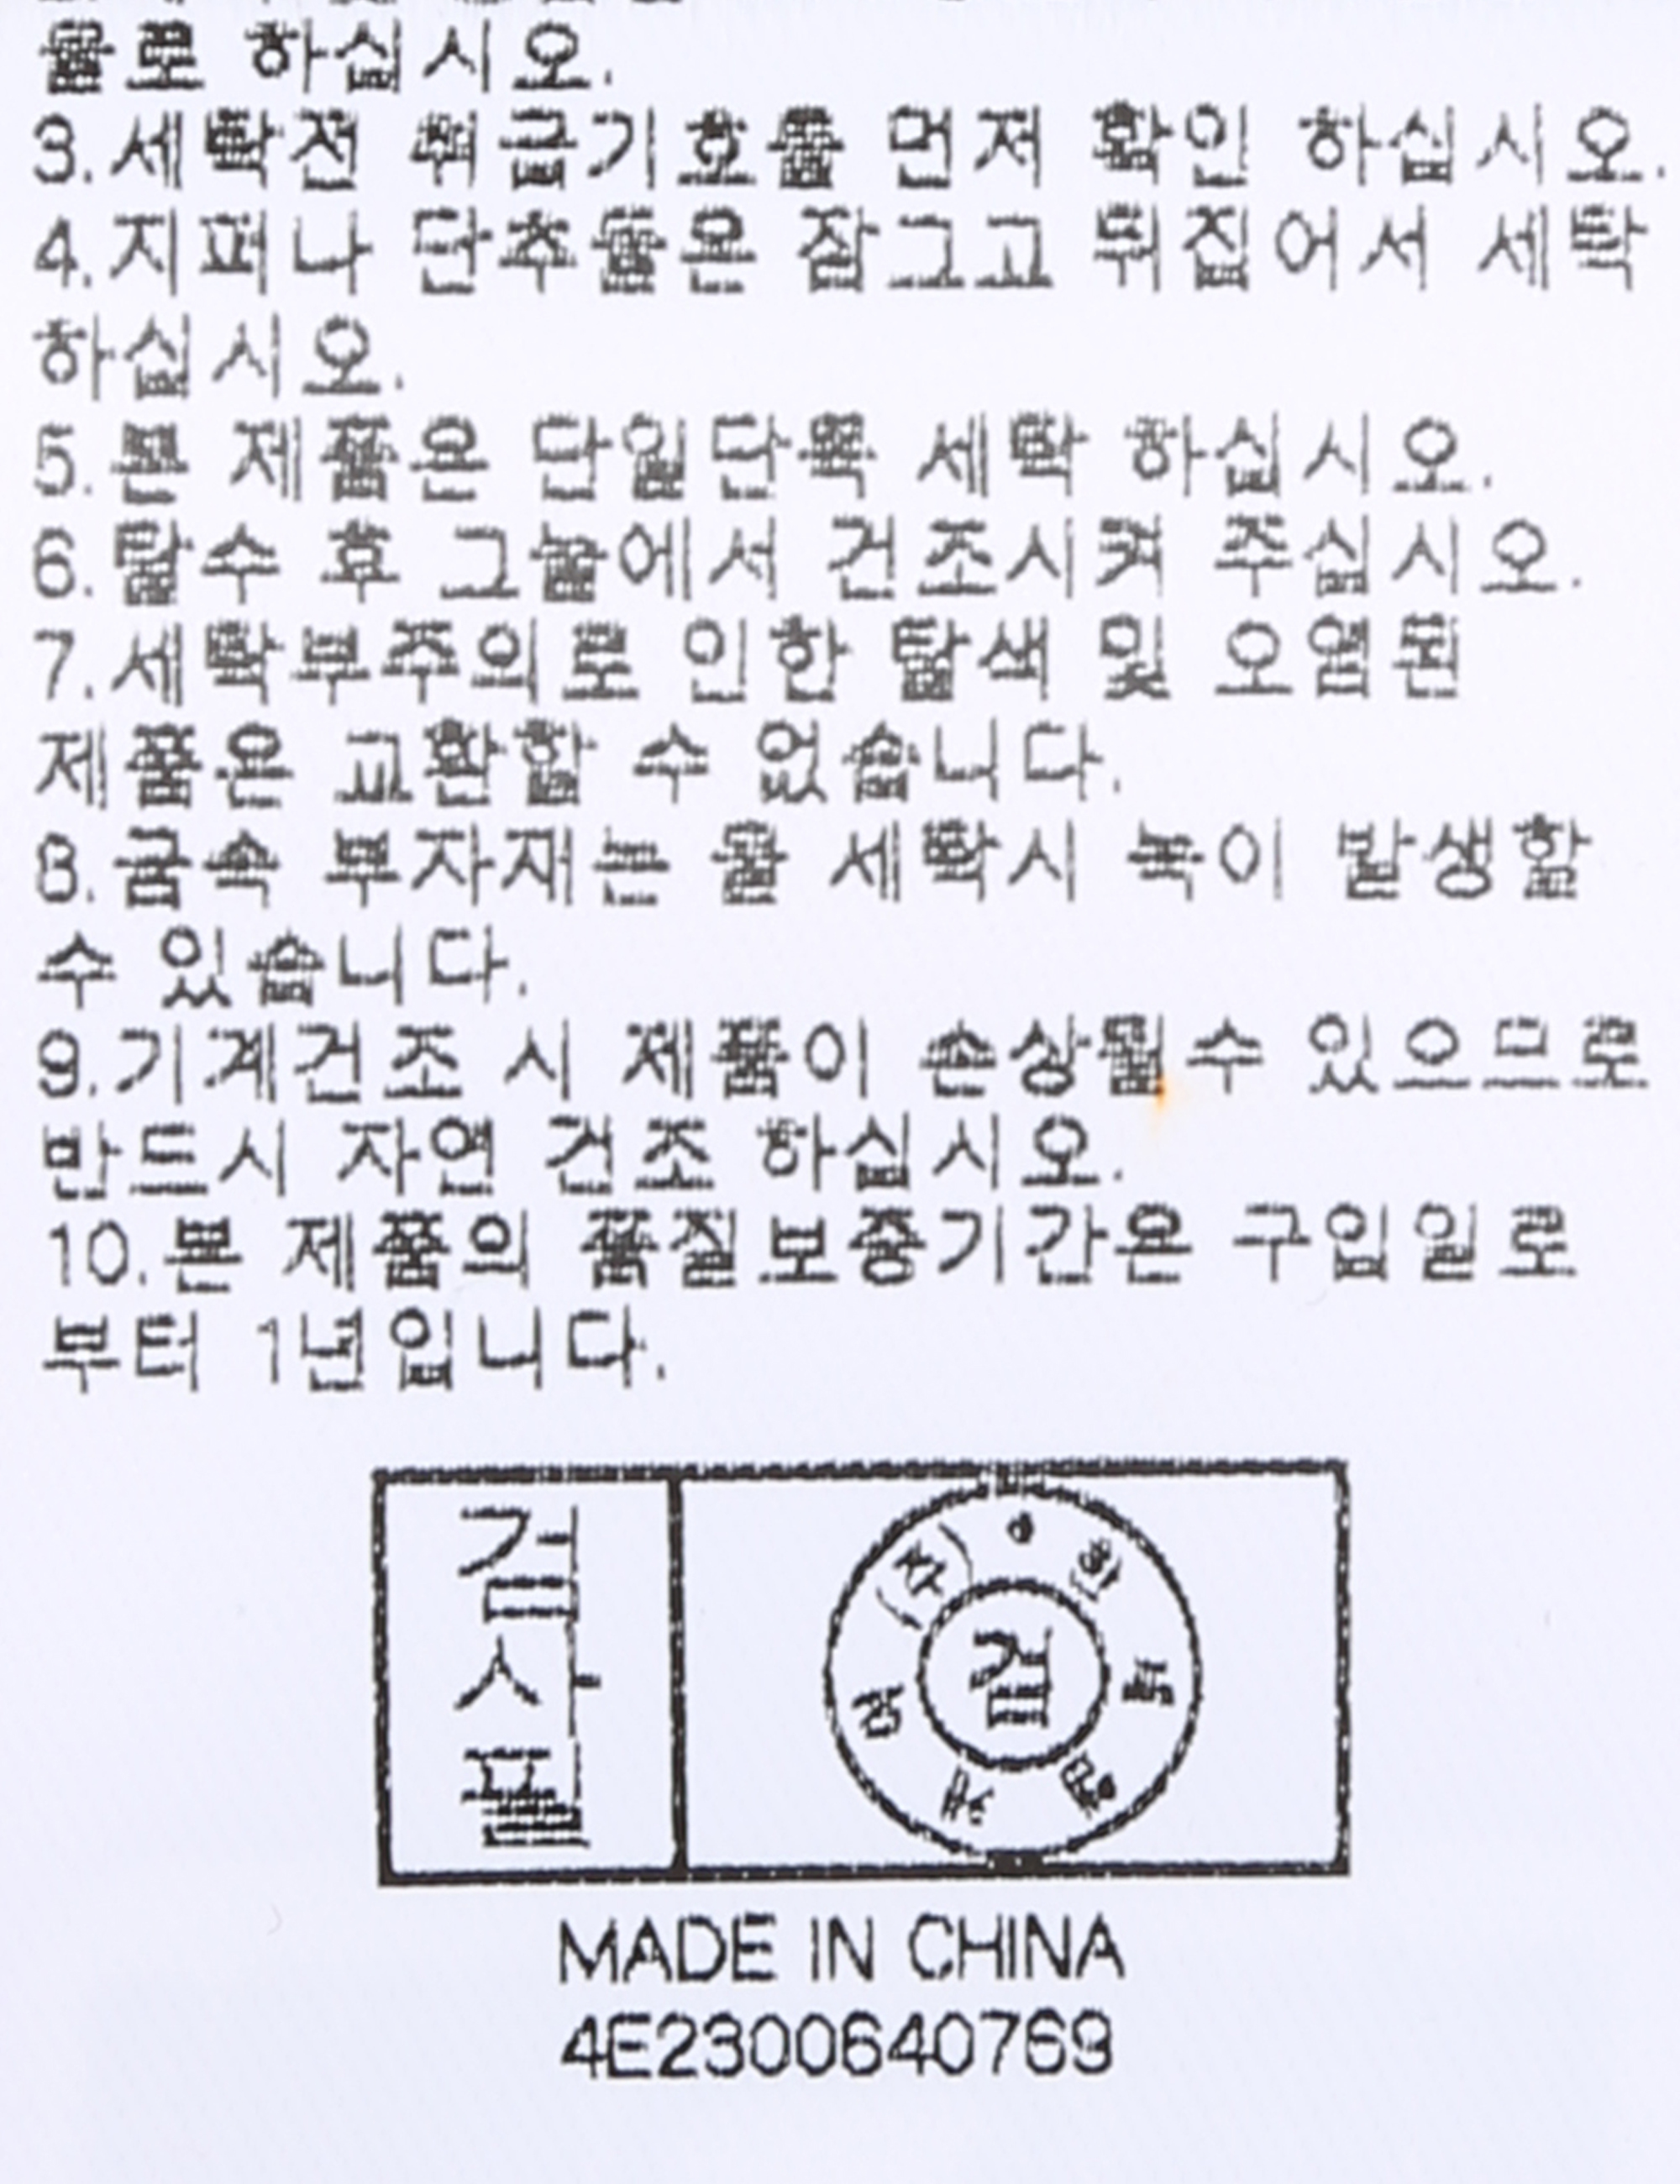 물로 하십시오.
3.세탁전 취급기호를 먼저 확인 하십시오.
4.지퍼나 단추들은 잠그고 뒤집어서 세탁
하십시오.
5.본 제품은 단일단독 세탁 하십시오.
6.탈수 후 그늘에서 건조시켜 주십시오.
7.세탁부주의로 인한 탈색 및 오염된
제품은 교환할 수 없습니다.
8.금속 부자재는 물 세탁시 녹이 발생할
수 있습니다.
9.기계건조 시 제품이 손상될수 있으므로
반드시 자연 건조 하십시오.
10.본 제품의 품질보증기간은 구입일로
부터 1년입니다.
검
사
필
검
MADE IN CHINA
4E2300640769